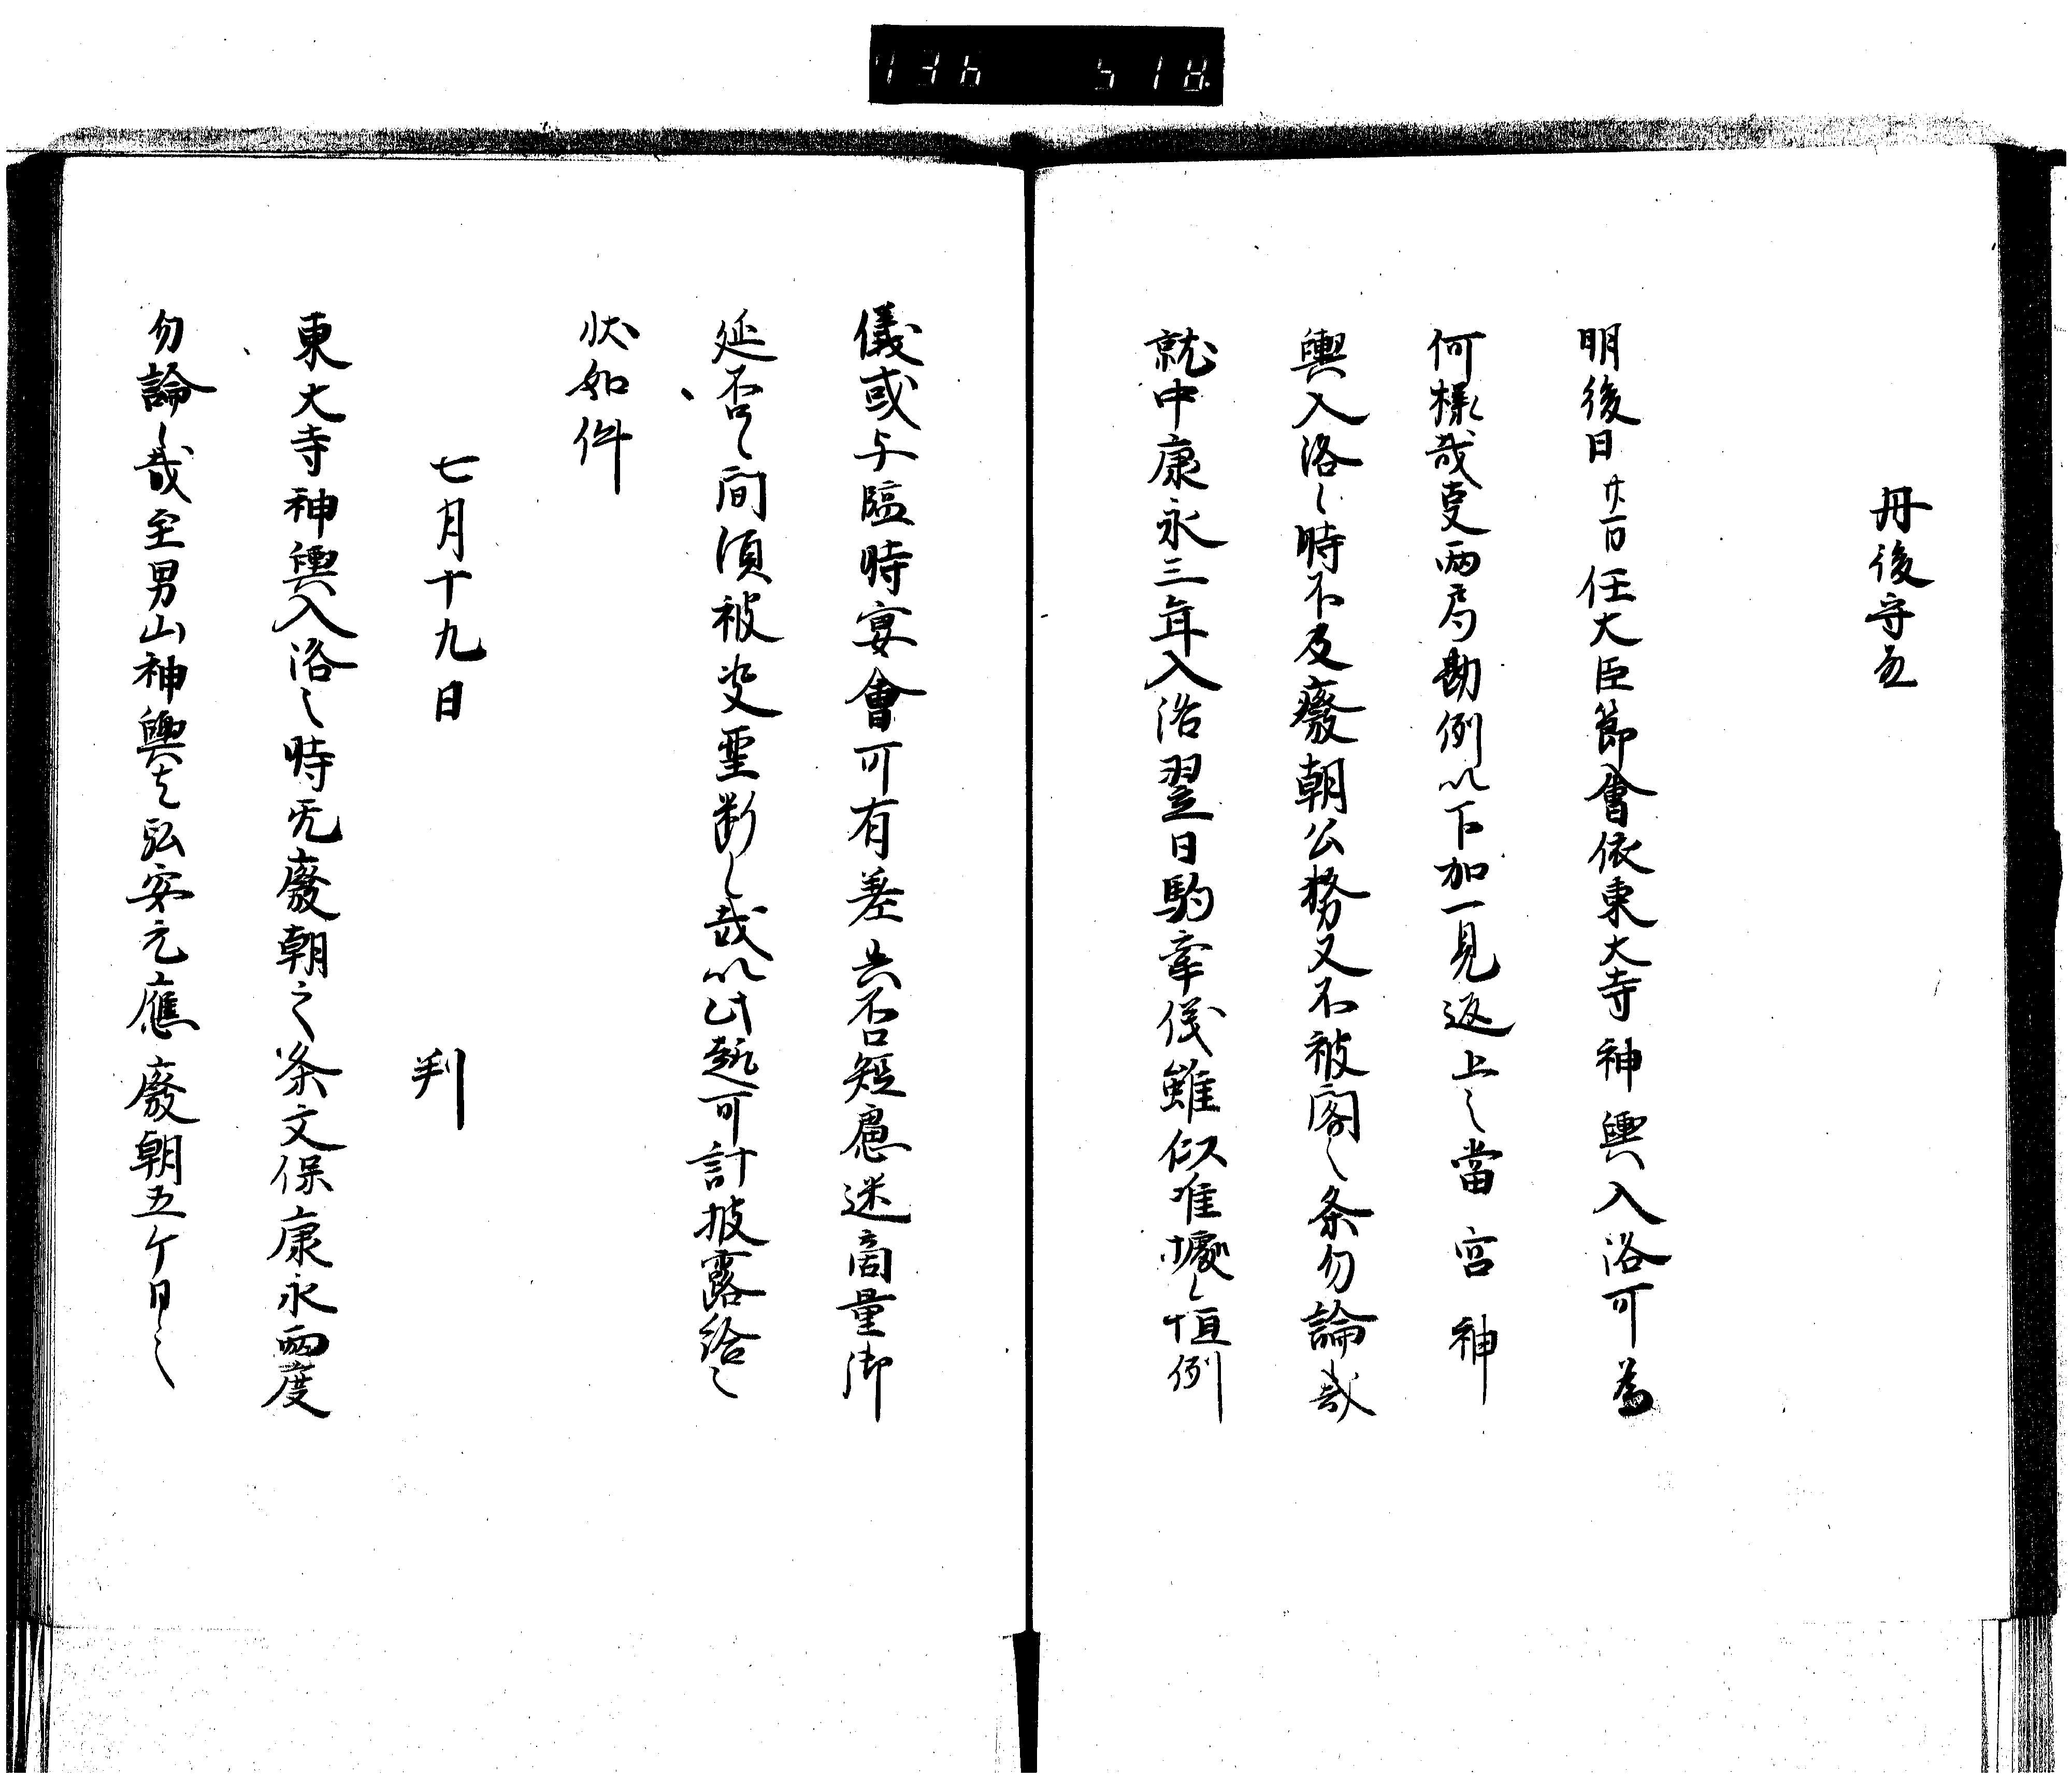 736 518
丹後守殿
明後日廿一日任大臣節會依東大寺神輿入洛可為
何様哉事両局勘例以下加一見返上之當宮神
輿入洛之時不及癈朝公務又不被閣之条勿論哉
就中康永三年入洛翌日駒牽儀雖似准據之恒例
儀或与臨時宴會可有差其否短慮迷商量御
延否之間須被決聖断之哉以此趣可計披露給之
状如件
七月十九日 判
東大寺神輿入洛之時无廢朝之条文保康永両度
勿論之哉至男山神輿者弘安元應廢朝五ケ日之